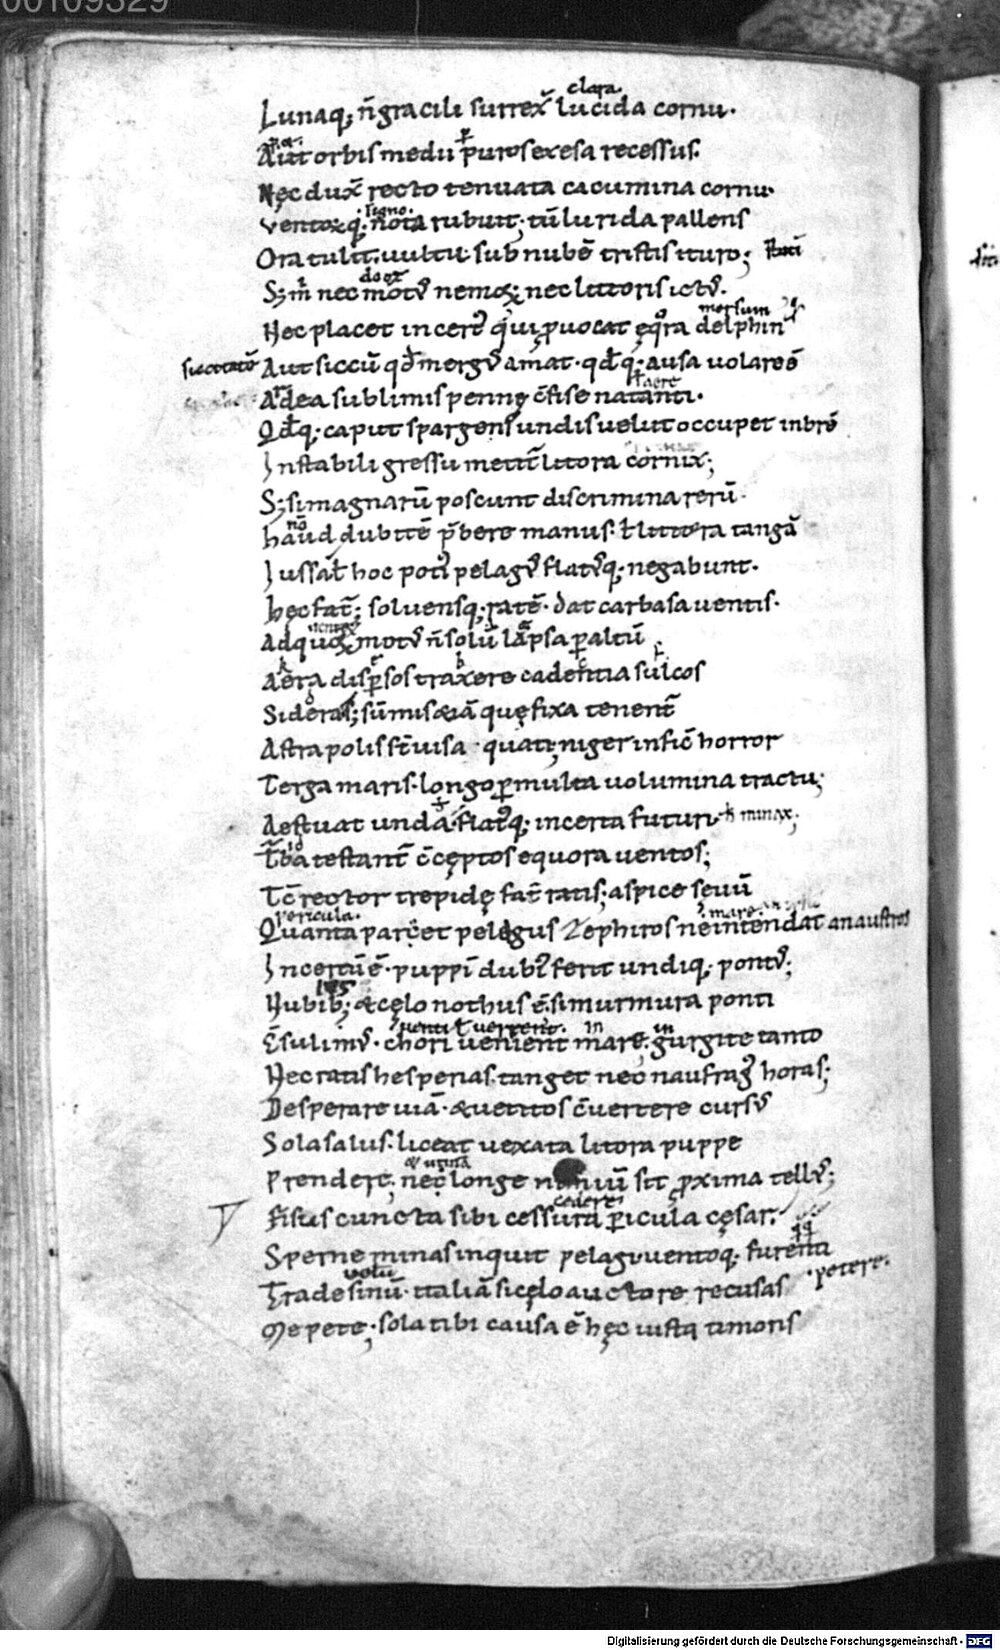 00109329
clara.
Lunaq; ñ gracili surrex̄ lucida cornu.
Aut orbis medii puros exesa recessus.
Nęc dux̄ recto tenuata cacumina cornu.
signo.
Ventoꝝq; nota rubuit; tū lurida pallens
Ora tulit. uultu sub nubē tristis ituro;
S; m̄ nec motꝰ nemoꝝ; nec littoris ictꝰ.
morsum
Nec placet incertꝰ qui ꝓuocat ęq̄ra delphin
siccitatē Aut siccū qđ mergꝰ amat. qđq; ausa volare ē
aere
Ardea sublimis pennę c̄fise natanti.
Qđq; caput spargens undis uelut occupet inbrē
Instabili gressu metit̄ litora cornix;
S; si magnarū poscunt discrimina rerū.
nō
haud dubitē p̄bere manus. ł littora tangā
Iussa ł hoc potiꝰ pelagꝰ flatꝰq; negabunt.
hęc fat̄; soluensq; ratē. dat carbasa uentis.
uentos
Ad quoꝝ motꝰ ñ solū lapsa ꝑ altū
Aera disꝑsos traxere cadentia sulcos
Sidera; s; sūmis & iā quę fixa tenent̄
Astra polis st̄ uisa quati; niger inficit horror
Terga maris. longo ꝑ multa uolumina tractu;
Aestuat unda. flatꝰq; incerta futuri minax;
Turba testant̄ c̄cęptos equora uentos;
Tc̄ rector trepidę fat̄ ratis; aspice seuū
pericula.
Quanta paret pelagus Zephiros ne intendat an austros
Incertū ē. puppī dubiꝰ ferit undiq; pontꝰ;
Nubib; & cęlo nothus ē. si murmura ponti
uenti
Ēsulimꝰ. chori uenient mare. gurgite tanto
Nec ratis hesperias tanget nec naufragꝰ horas;
Desperare uiā. & uetitos c̄uertere cursꝰ
Sola salus. liceat uexata litora puppe
Prendere, nec longe nimiū sit ꝓxima tellꝰ;
cedere
Fisus cuncta sibi cessura ꝑicula cęsar.
Sperne minas inquit pelagi uentoq; furenti
uelū
Trade sinū. italiā si cęlo auctore recusas . petere.
Me pete; sola tibi causa ē hęc iusta timoris
Digitalisierung gefördert durch die Deutsche Forschungsgemeinschaft - DFG